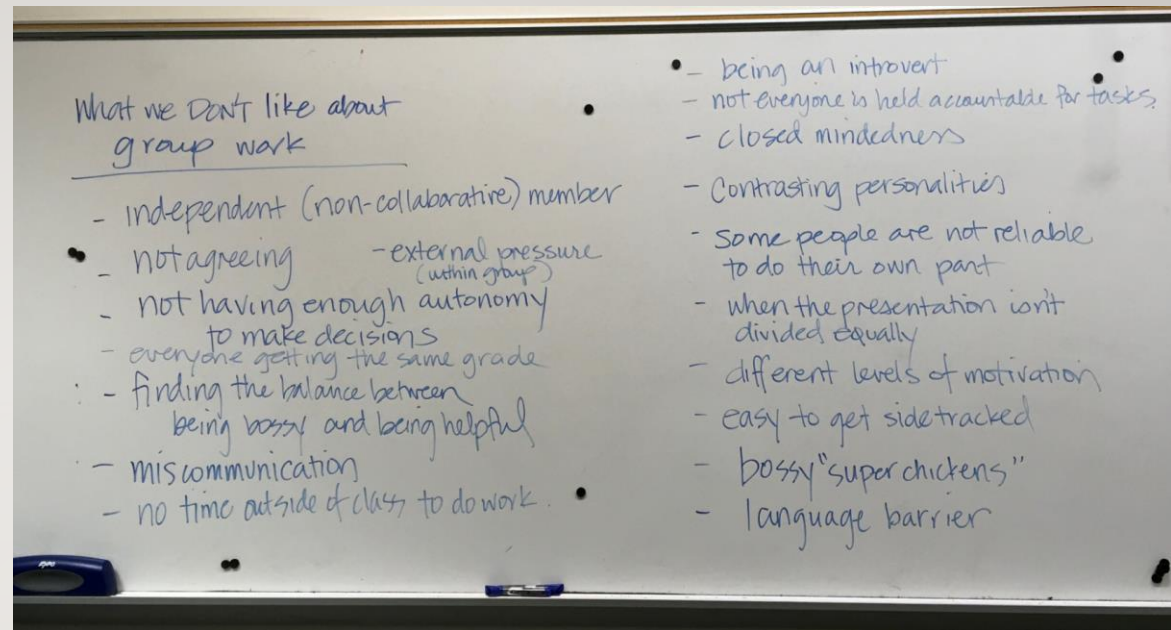 What we DON'T like about
group work
- independent (non-collaborative) member
- not agreeing - external pressure
(within group)
- not having enough autonomy
to make decisions
- everyone getting the same grade
- finding the balance between
being bossy and being helpful
- miscommunication
- no time outside of class to do work.
- being an introvert
- not everyone is held accountable for tasks.
- closed mindedness
- Contrasting personalities
- Some people are not reliable
to do their own part
- when the presentation isn't
divided equally
- different levels of motivation
- easy to get sidetracked
- bossy "super chickens"
- language barrier
expo